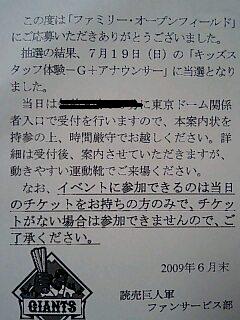 この度は「ファミリー・オープンフィールド」
にご応募いただきありがとうございました。
抽選の結果、７月１９日（日）の「キッズス
タッフ体験－Ｇ＋アナウンサー」に当選となり
ました。
当日は
に東京ドーム関係
者入口で受付を行いますので、本案内状を
持参の上、時間厳守でお越しください。詳
細は受付後、案内させていただきますが、
動きやすい運動靴でご来場ください。
なお、イベントに参加できるのは当日
のチケットをお持ちの方のみで、チケッ
トがない場合は参加できませんので、ご
了承ください。
2009年６月末
GIANTS
読売巨人軍
ファンサービス部